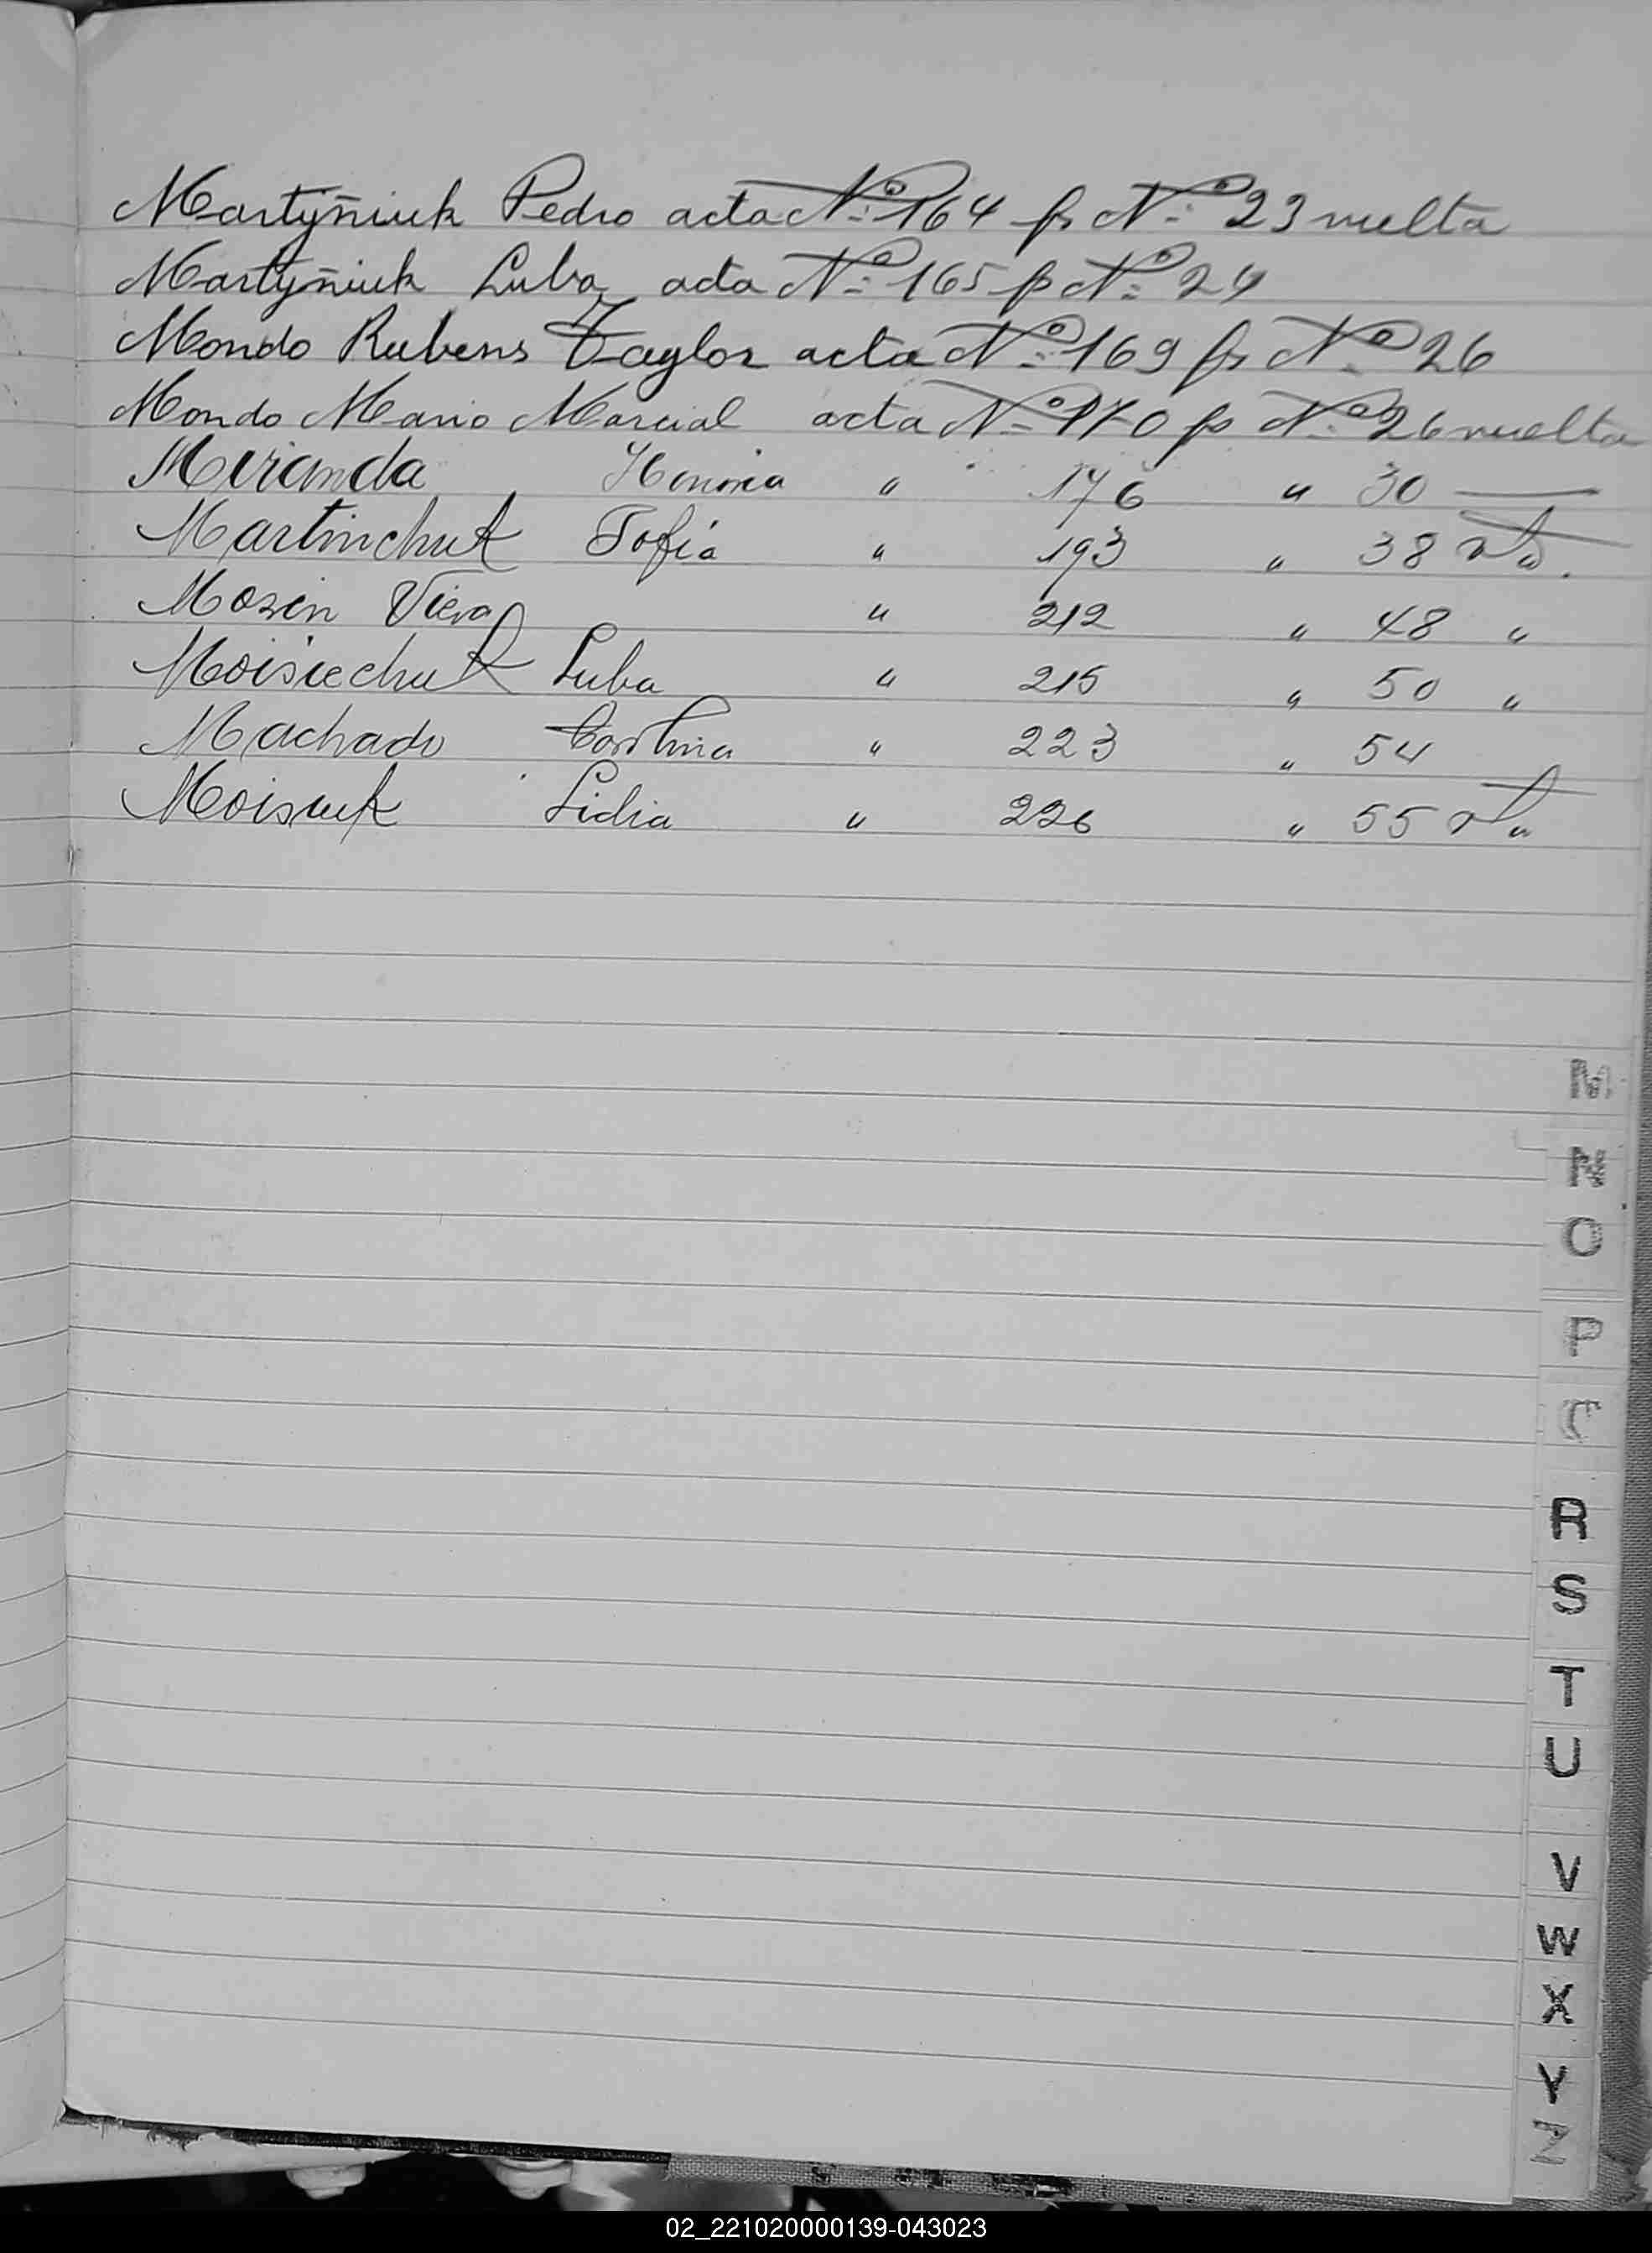 Martyñiuk Pedro acta Nº 164 fs Nº 23 vuelta
Martyñiuk Luba acta Nº 165 fs Nº 24
Mondo Rubens Taylor acta Nº 169 fs Nº 26
Mondo Mario Marcial acta Nº 170 fs Nº 26 vuelta
Miranda " 176 " 30 —
Martinchuk Sofía " 193 " 38 vta.
Mosen Viera " 212 " 48 "
Moisiechuk Luba " 215 " 50 "
Machado " 223 " 54
Moisiuk Lidia " 226 " 55 vta
M
N
O
P
R
S
T
U
V
W
X
Y
Z
02_221020000139-043023